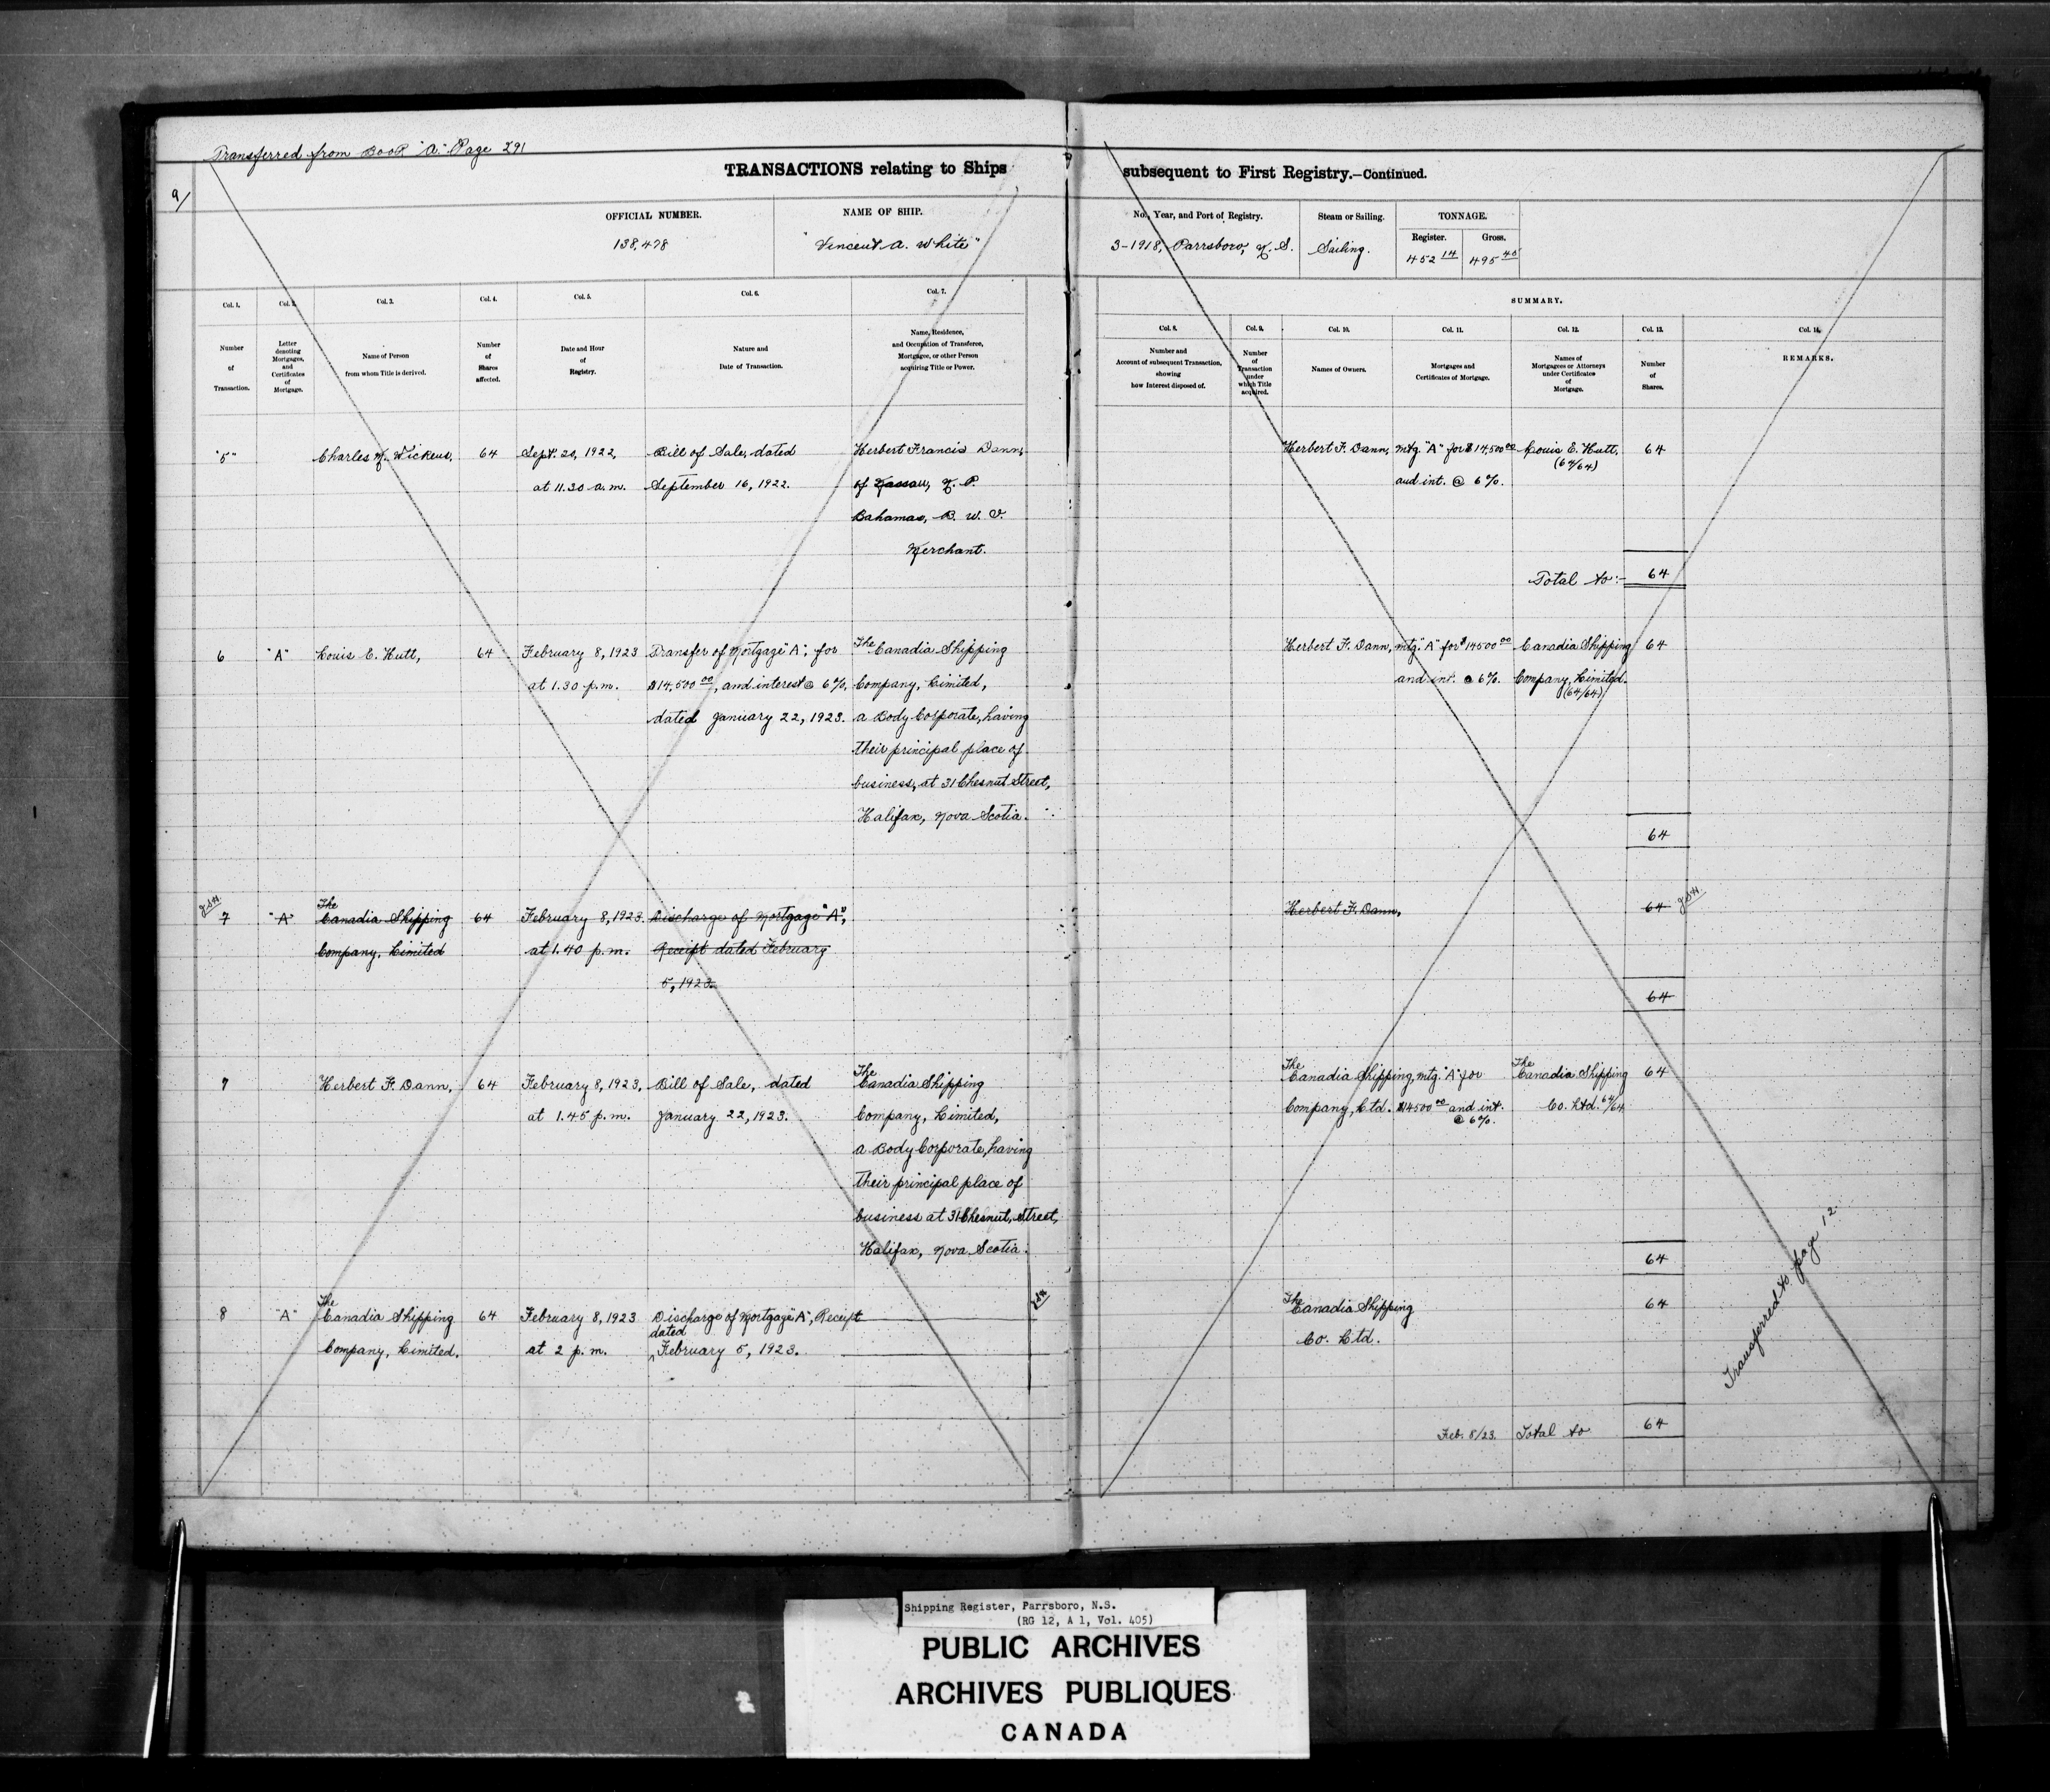 Transferred from Book "A" Page 291
9/
TRANSACTIONS relating to Ships subsequent to First Registry.—Continued.
OFFICIAL NUMBER.
138,478
NAME OF SHIP.
"Vincent A. White"
No., Year, and Port of Registry.
3-1918, Parrsboro, N. S.
Steam or Sailing.
Sailing.
TONNAGE.
Register.
452 14
Gross.
495 45
Col. 1.
Number
of
Transaction.
Col. 2.
Letter
denoting
Mortgages,
and
Certificates
of
Mortgage.
Col. 3.
Name of Person
from whom Title is derived.
Col. 4.
Number
of
Shares
affected.
Col. 5.
Date and Hour
of
Registry.
Col. 6.
Nature and
Date of Transaction.
Col. 7.
Name, Residence,
and Occupation of Transferee,
Mortgagee, or other Person
acquiring Title or Power.
SUMMARY.
Col. 8.
Number and
Account of subsequent Transaction,
showing
how Interest disposed of.
Col. 9.
Number
of
Transaction
under
which Title
acquired.
Col. 10.
Names of Owners.
Col. 11.
Mortgages and
Certificates of Mortgage.
Col. 12.
Names of
Mortgagees or Attorneys
under Certificates
of
Mortgage.
Col. 13.
Number
of
Shares.
Col. 14.
REMARKS.
"5"
Charles N. Wickens,
64
Sept. 20, 1922,
at 11.30 a.m.
Bill of Sale, dated
September 16, 1922.
Herbert Francis Dann,
of Nassau, N. P.
Bahamas, B. W. I.
Merchant.
Herbert F. Dann,
mtg. "A" for $14,500 00
and int. @ 6%.
Louis E. Hutt,
(64/64)
64
Total to:- 64
6
"A"
Louis E. Hutt,
64
February 8, 1923
at 1.30 p.m.
Transfer of Mortgage "A", for
$14,500 00, and interest @ 6%,
dated January 22, 1923.
The Canadia Shipping
Company, Limited,
a Body Corporate, having
their principal place of
business, at 31 Chesnut Street,
Halifax, Nova Scotia.
Herbert F. Dann,
mtg. "A" for $14500 00
and int. @ 6%.
Canadia Shipping
Company, Limited.
(64/64)
64
64
7
"A"
The
Canadia Shipping
Company, Limited
64
February 8, 1923.
at 1.40 p.m.
Discharge of Mortgage "A",
Receipt dated February
5, 1923.
Herbert F. Dann,
64
64
7
Herbert F. Dann,
64
February 8, 1923,
at 1.45 p.m.
Bill of Sale, dated
January 22, 1923.
The
Canadia Shipping
Company, Limited,
a Body Corporate, having
their principal place of
business at 31 Chesnut, Street,
Halifax, Nova Scotia.
The
Canadia Shipping,
Company, Ltd.
mtg. "A" for
$14500 00 and int.
@ 6%.
The
Canadia Shipping
Co. Ltd. 64/64
64
64
8
"A"
The
Canadia Shipping
Company, Limited.
64
February 8, 1923
at 2 p.m.
Discharge of Mortgage "A", Receipt
dated
February 5, 1923.
The
Canadia Shipping
Co. Ltd.
64
Feb. 8/23. Total to 64
Transferred to page 12.
Shipping Register, Parrsboro, N.S.
(RG 12, A 1, Vol. 405)
PUBLIC ARCHIVES
ARCHIVES PUBLIQUES
CANADA